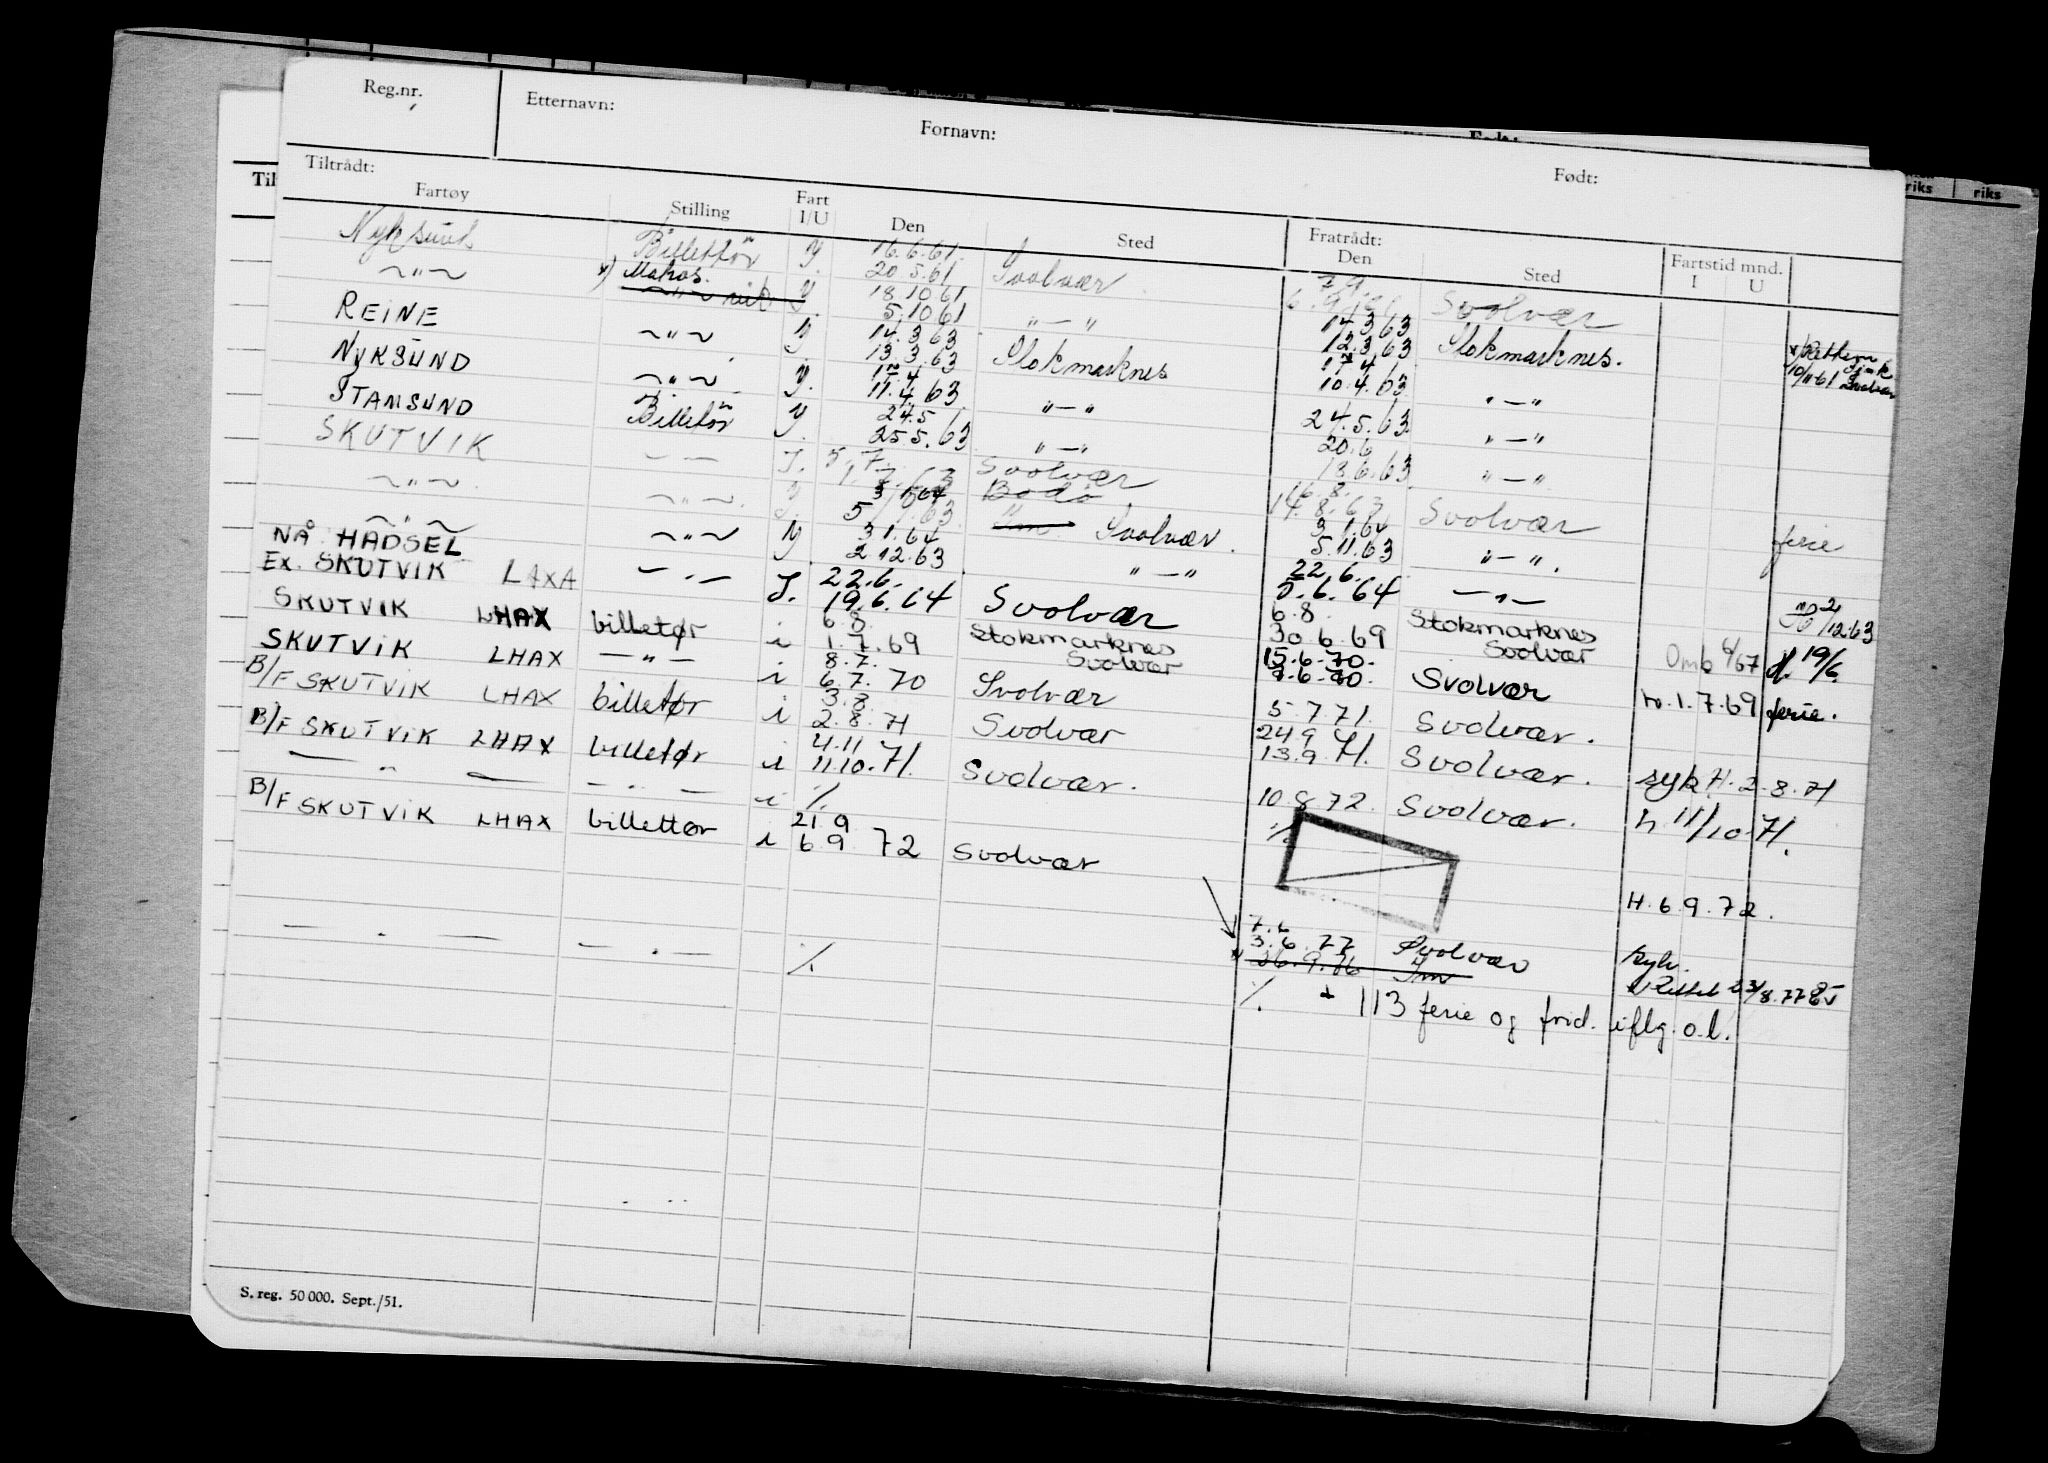 Reg.nr. Etternavn: Fornavn: Født:
Tiltrådt: Fratrådt: Fartstid mnd.
Fartøy Stilling Fart I/U Den Sted Den Sted I U
Nyksund Billettør 16.6.61
~"~ Matros 20.5.61 Svolvær 7.9. Svolvær
18.10.61
REINE ~"~ 5.10.61 "—" 14.3.63 Stokmarknes.
14.3.63 12.3.63
NYKSUND ~"~ 13.3.63 Stokmarknes 17.4 "—" 10/11-61 Svolvær
17.4 10.4.63
STAMSUND Billetør 11.4.63 "—" 24.5.63 "—"
24.5 20.6
SKUTVIK — — 25.5.63 "—" 18.6.63 "—"
5.7. 16.8.
~"~ ~"~ 1.7.63 Svolvær 14.8.63 Svolvær ferie
3.1.64 Bodø 3.1.64
~"~ ~"~ 5/11.63 Svolvær. 5.11.63 "—".
NÅ HADSEL 3.1.64
EX. SKUTVIK LAXA —.— 2.12.63 "—" 22.6. —"— 2/12.63
22.6. 5.6.64
SKUTVIK LHAX billetør 19.6.64 Svolvær 6.8. Stokmarknes Omb 6/67 19/6.
i 6.8. 30.6.69 Svolvær
SKUTVIK LHAX —"— i 1.7.69 Stokmarknes Svolvær 15.6.70. Svolvær h.1.7.69 ferie.
8.7. 9.6.70.
B/F SKUTVIK LHAX billetør i 6.7.70 Svolvær 5.7.71. Svolvær.
3.8. 24.9
B/F SKUTVIK LHAX billetør i 2.8.71 Svolvær 13.9.71. Svolvær. syk H.2.8.71
4.11
— " — — . — i 11.10.71. Svolvær. 10.8.72. Svolvær. h 11/10-71.
%
B/F SKUTVIK LHAX billettør i 21.9 %
6.9.72 Svolvær
H.6.9.72.
7.6
— . — — . — 3.6.77 Svolvær syk.
%. 26.9.76 Rettet 23/8.77
%. + 113 ferie og frid. iflg. o.l.
S. reg. 50 000. Sept./51.